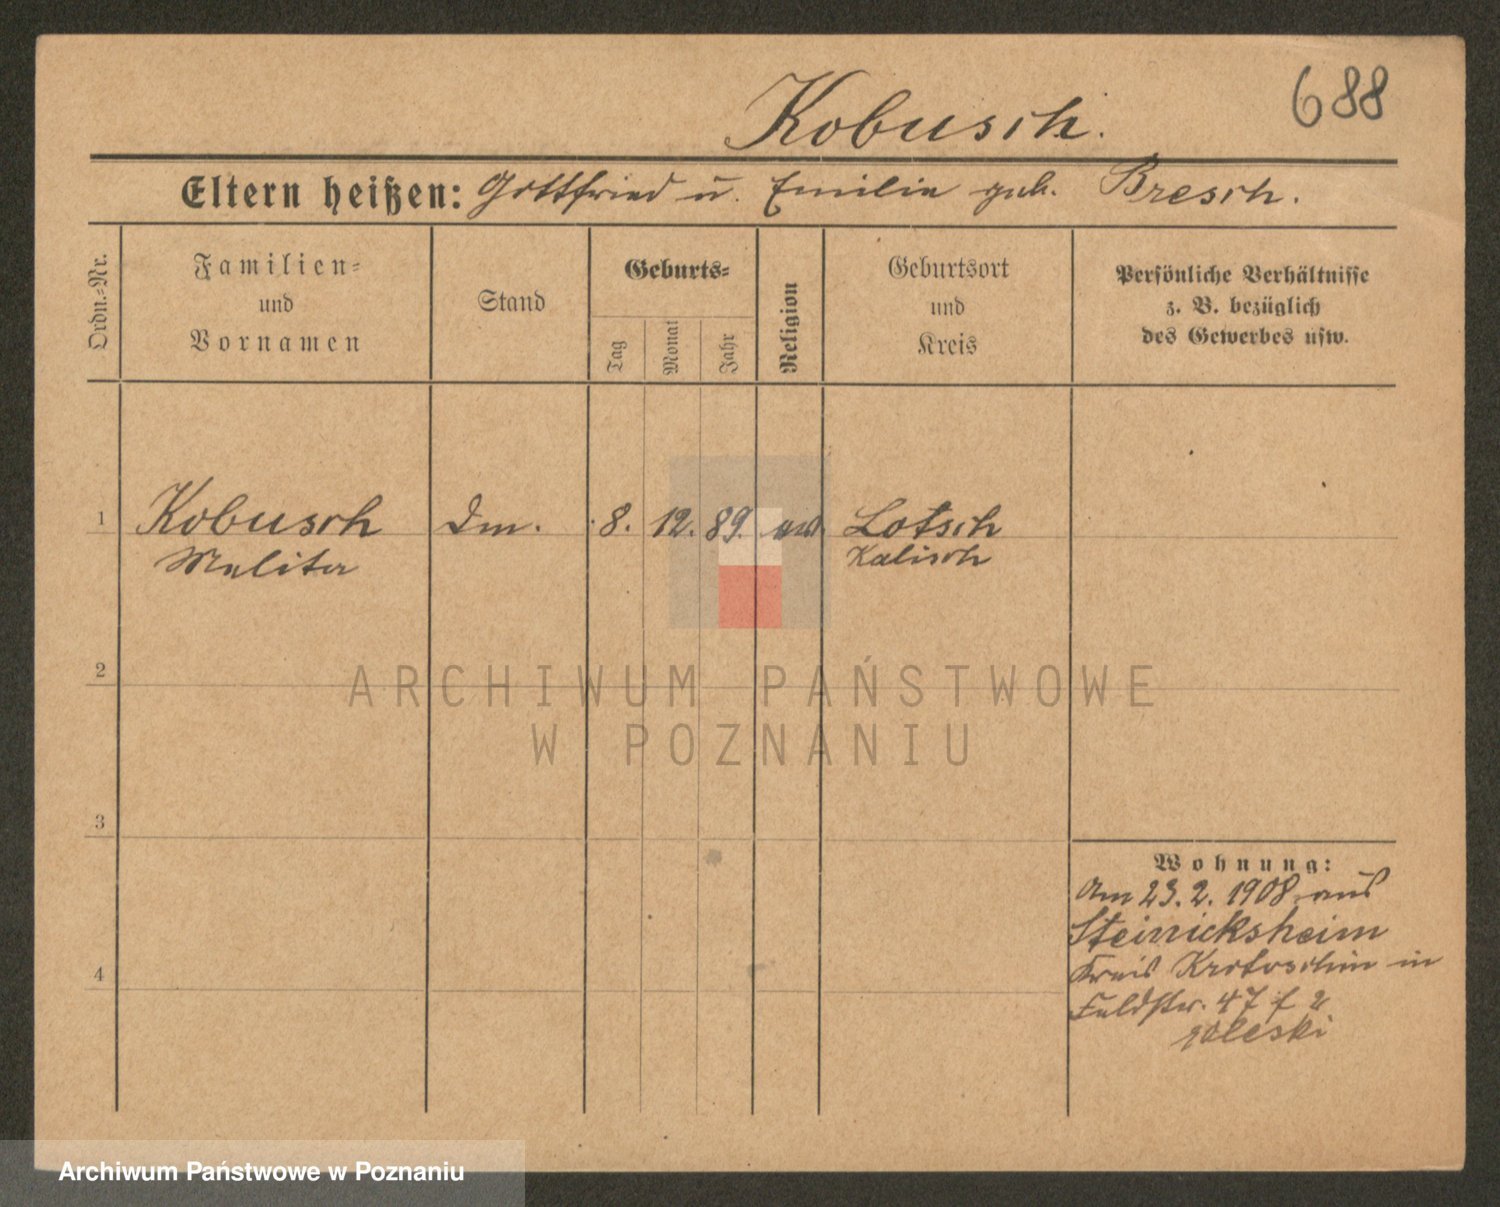 688
Kobusch.
Eltern heißen: Gottfried u. Emilie geb. Bresch.
Ordn.-Nr.
Familien-
und
Vornamen
Stand
Geburts-
Tag
Monat
Jahr
Religion
Geburtsort
und
Kreis
Persönliche Verhältnisse
z. B. bezüglich
des Gewerbes usw.
1 Kobusch 8. 12. 89. Lotsch
Melita Kalisch
2
ARCHIWUM PAŃSTWOWE
W POZNANIU
3
Wohnung:
Am 23. 2. 1908 aus
Steinicksheim
4
Kreis Krotoschin in
Feldstr. 47
Archiwum Państwowe w Poznaniu